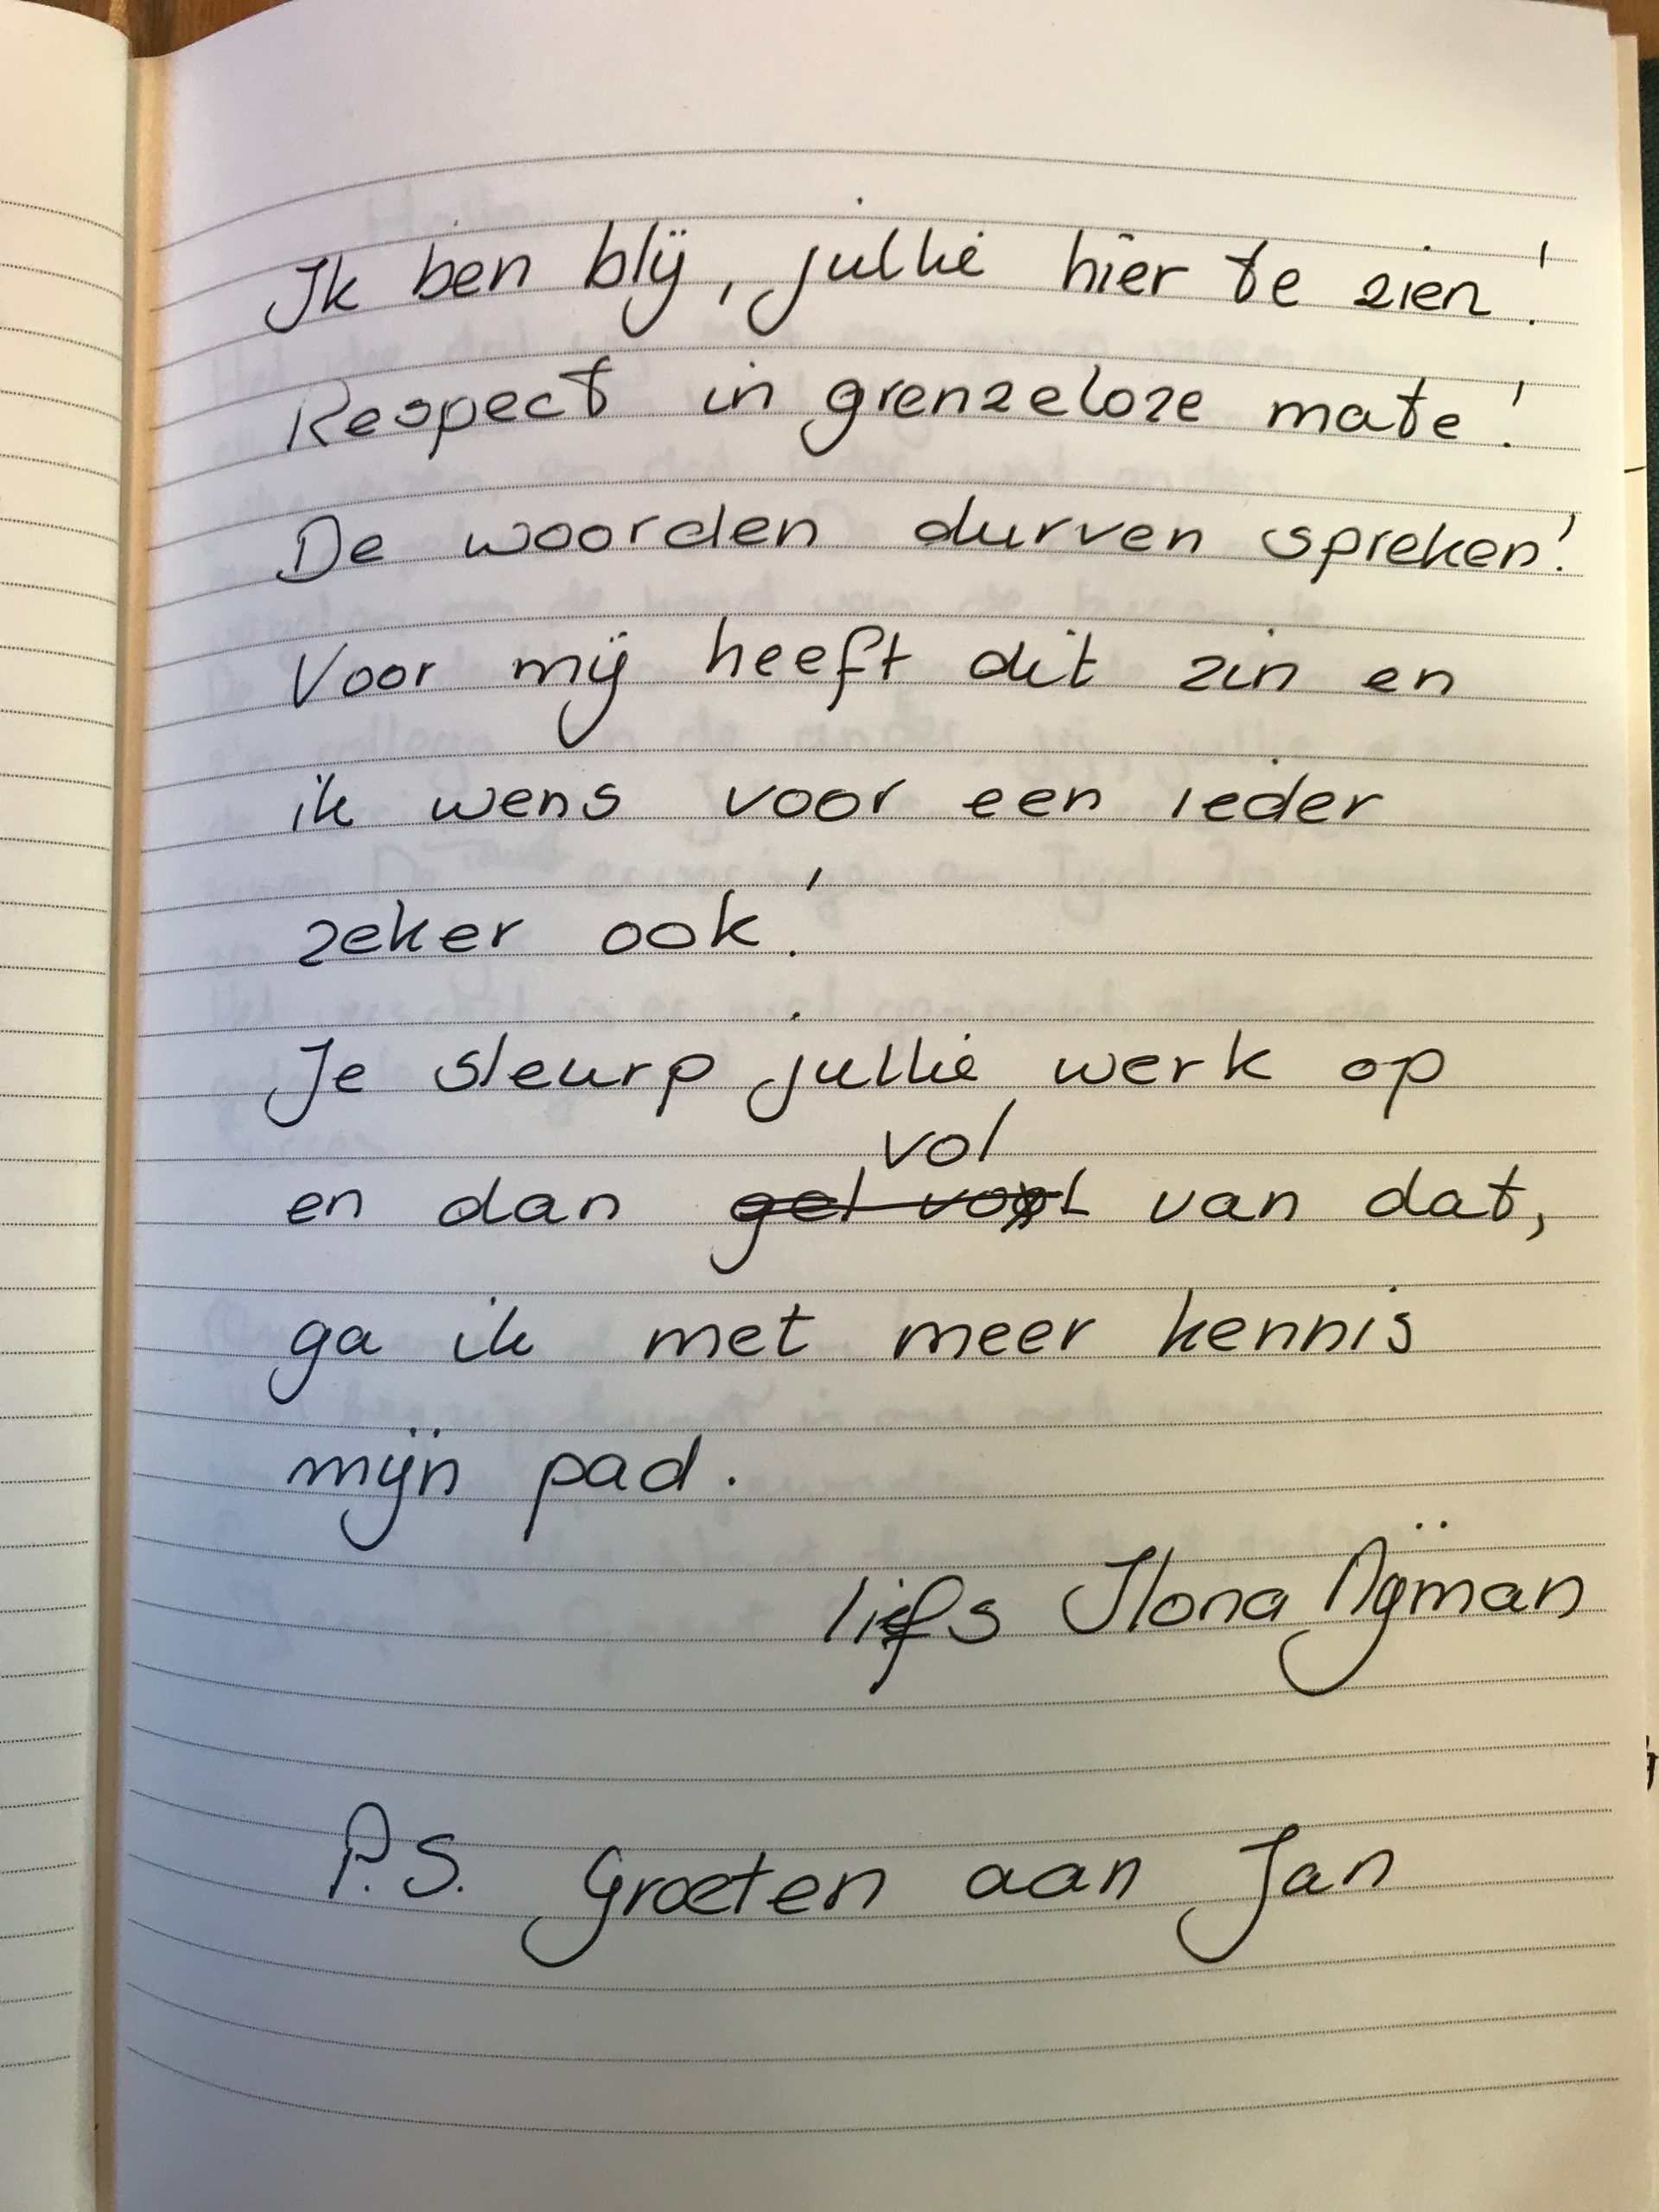 Ik ben blij, jullie hier te zien!
Respect in grenzeloze mate!
De woorden durven spreken!
Voor mij heeft dit zin en
ik wens voor een ieder
zeker ook!
Je sleurp jullie werk op
vol
en dan van dat,
ga ik met meer kennis
mijn pad.
liefs Ilona Nijman
P.S. Groeten aan Jan